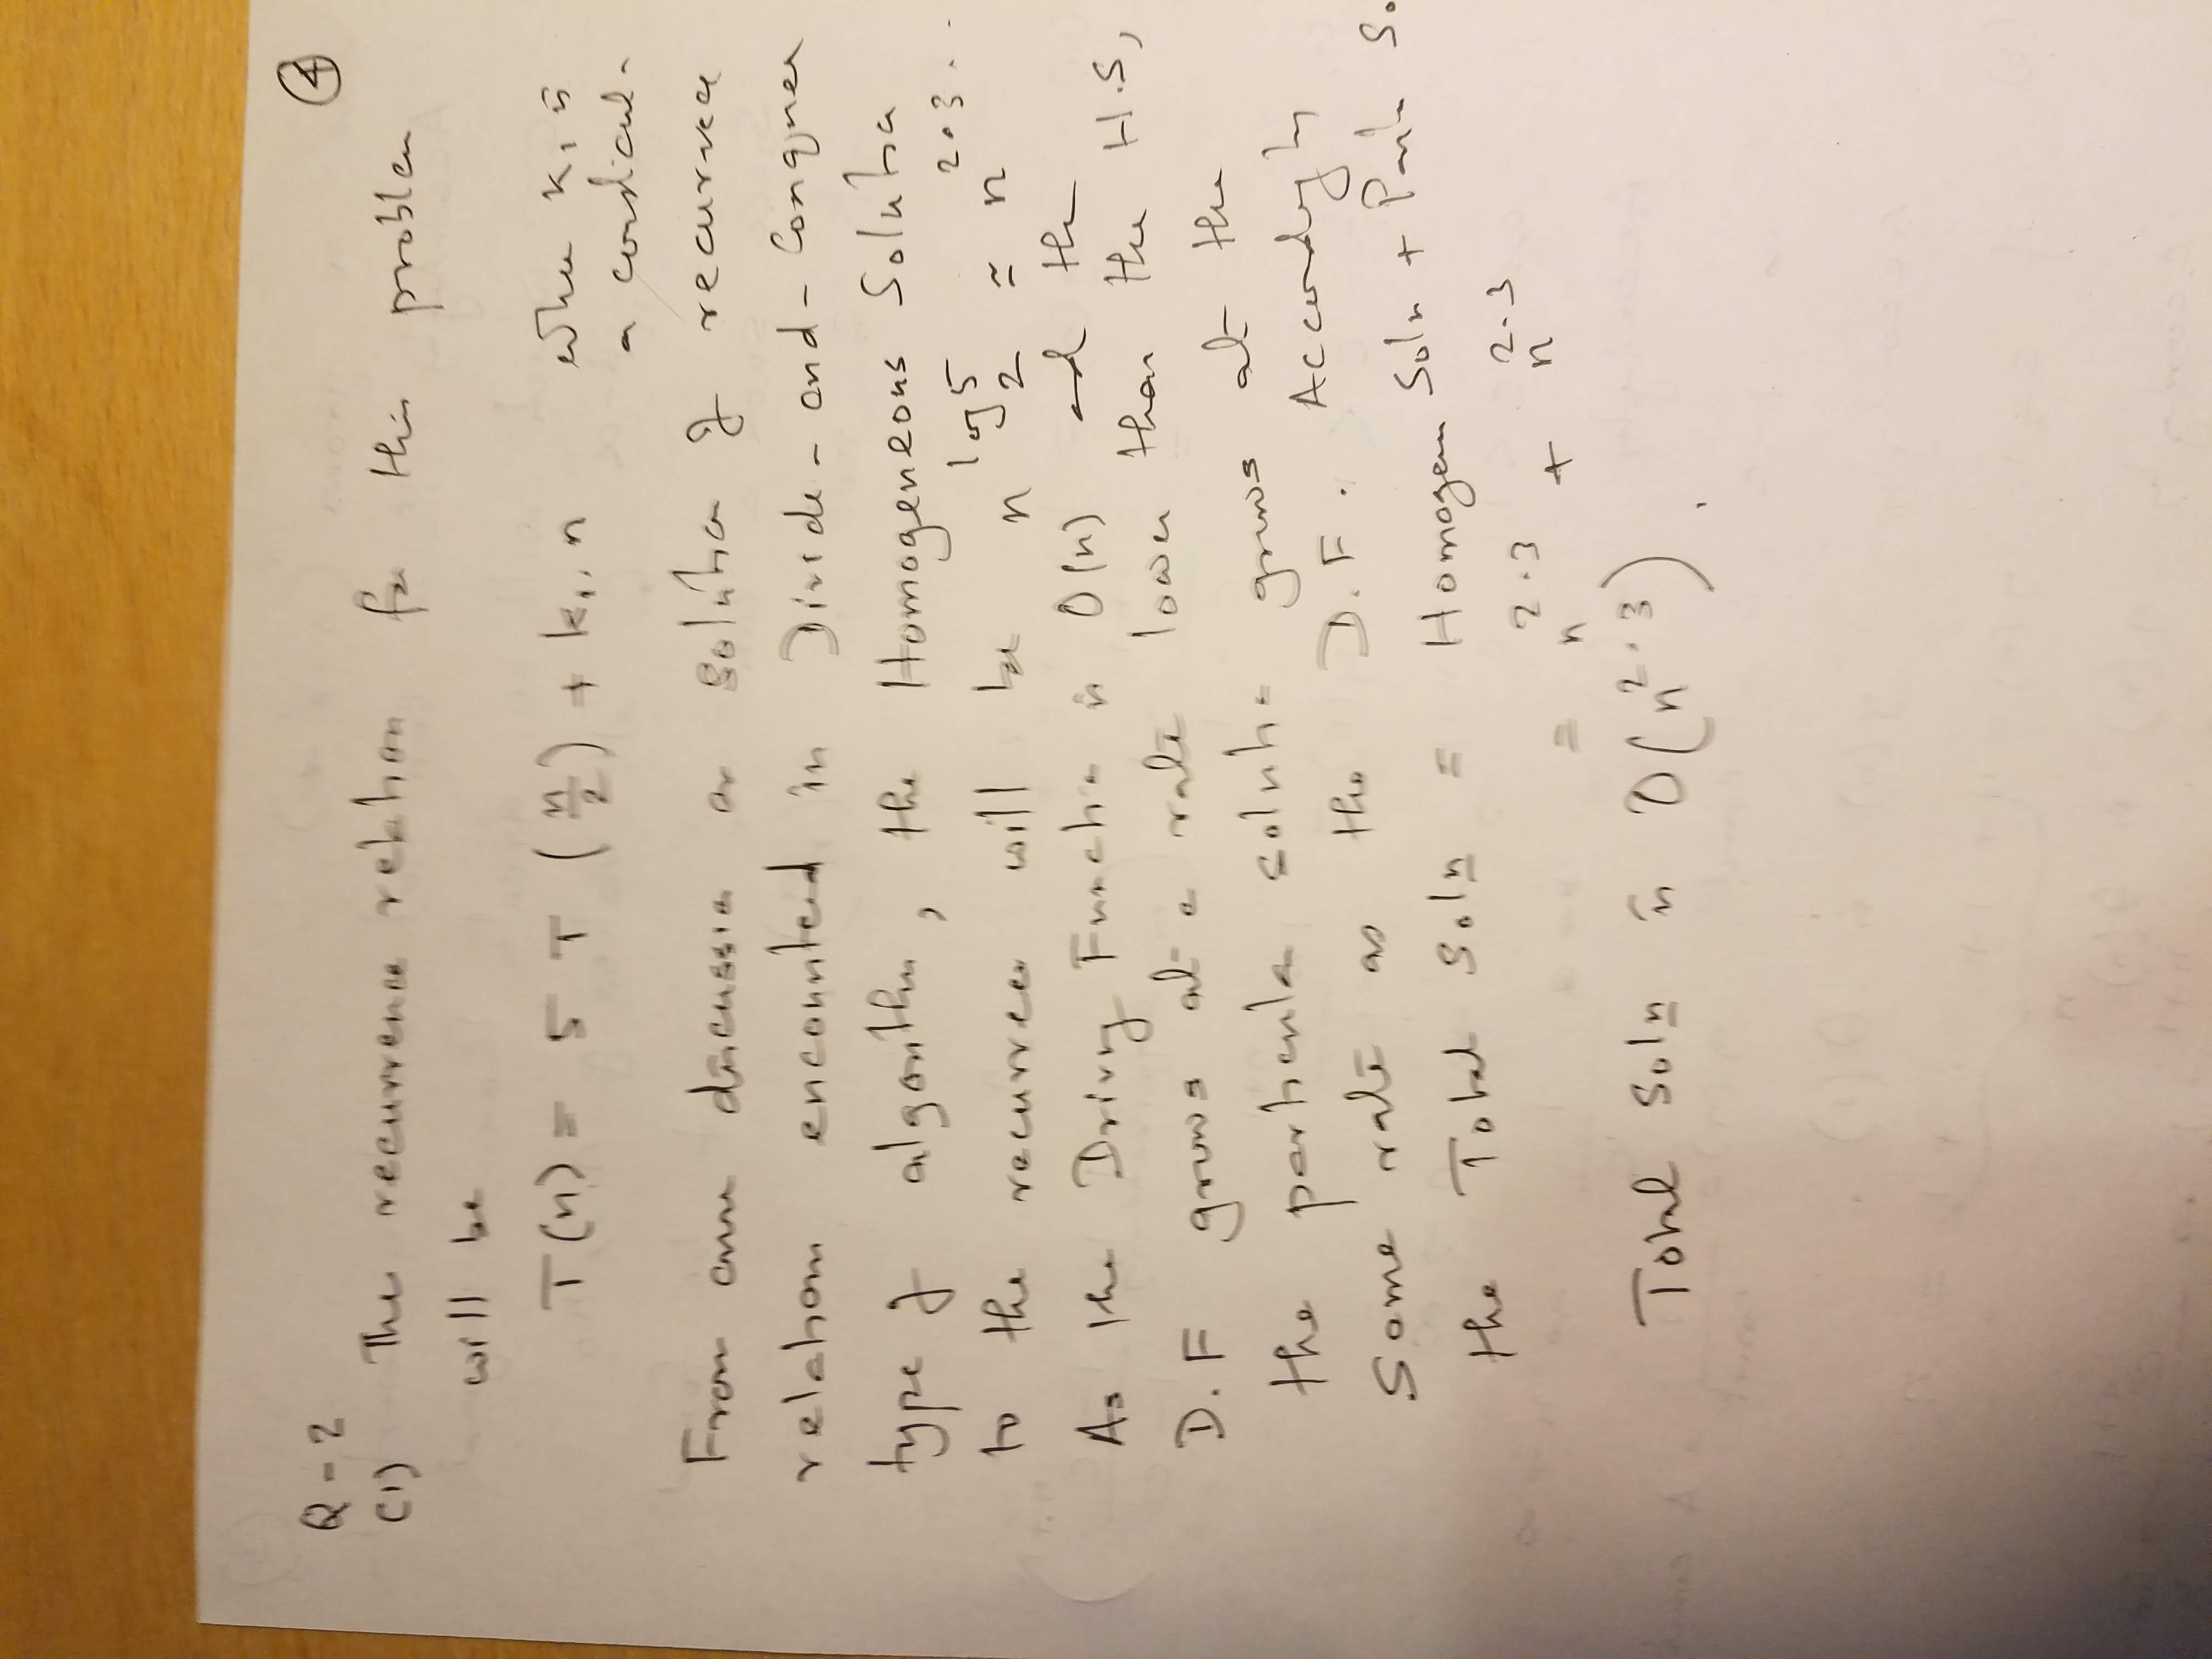 ④
Q-2
(1) The recurrence relation for this problem
will be
T(n) = 5 T (n/2) + k₁.n where k₁ is
a constant.
From our discussion on solution of recurrence
relation encountered in Divide-and-Conquer
type of algorithm, the Homogeneous Solution
to the recurrence will be n^log₂5 ≈ n^2.3...
As the Driving Function is O(n) and the
D.F grows at a rate lower than the H.S,
the particular solution grows at the
same rate as the D.F. Accordingly
the Total Soln = Homogen Soln + Parti So
= n^2.3 + n^2.3
Total Soln is O(n^2.3).